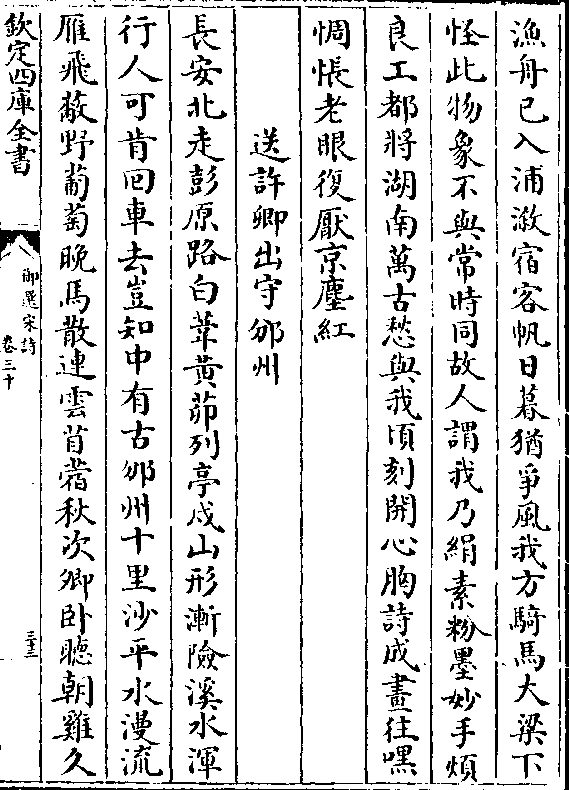 漁舟已入浦溆宿客帆日暮猶爭風我方騎馬大梁下
怪此物象不與常時同故人謂我乃絹素粉墨妙手煩
良工都將湖南萬古愁與我頃刻開心胸詩成畫往嘿
惆悵老眼復厭京塵紅
送許卿出守邠州
長安北走彭原路白葦黄茆列亭戍山形漸險溪水渾
行人可肯回車去豈知中有古邠州十里沙平水漫流
雁飛蔽野葡萄晩馬散連雲苜蓿秋次卿卧聽朝雞久
欽定四庫全書
御選宋詩
卷三十
三十三